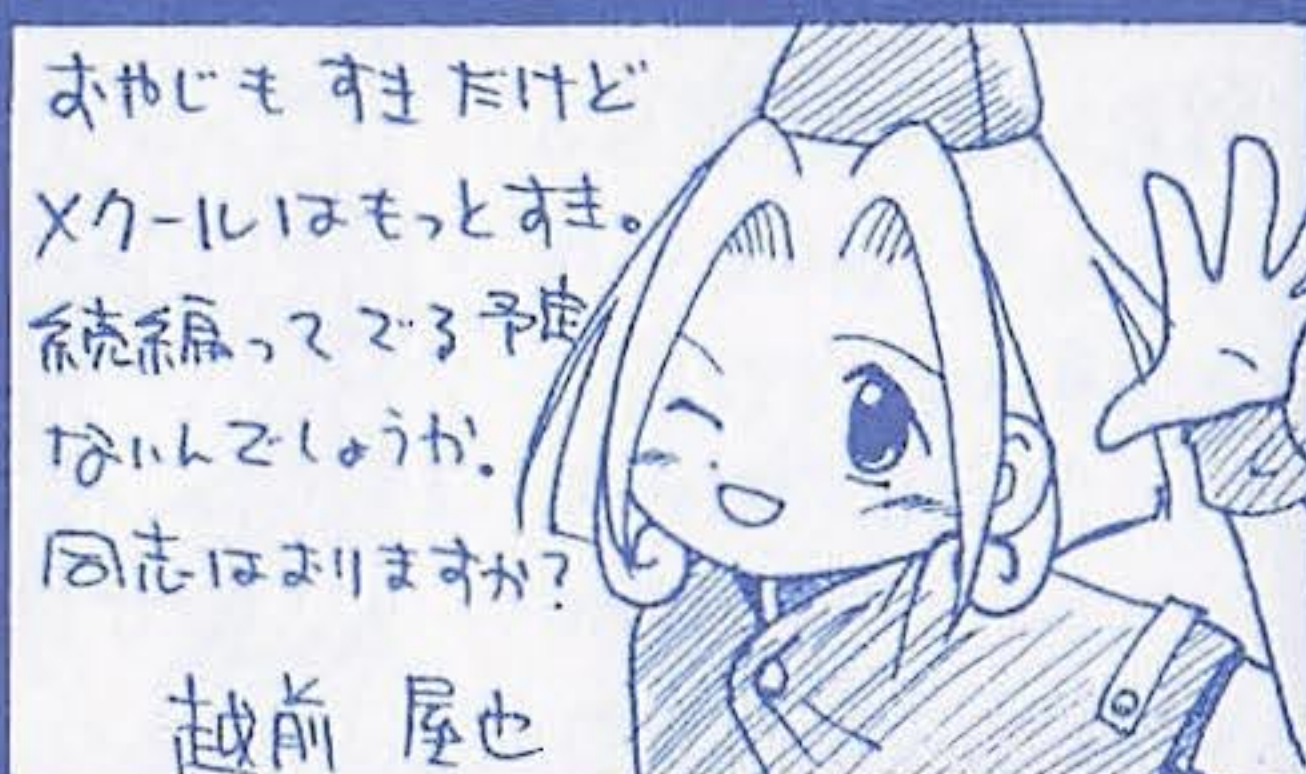 おやじも すきだけど
メクールはもっとすき。
続編ってでる予定
ないんでしょうか。
同志はおりますか?
越前 屋也